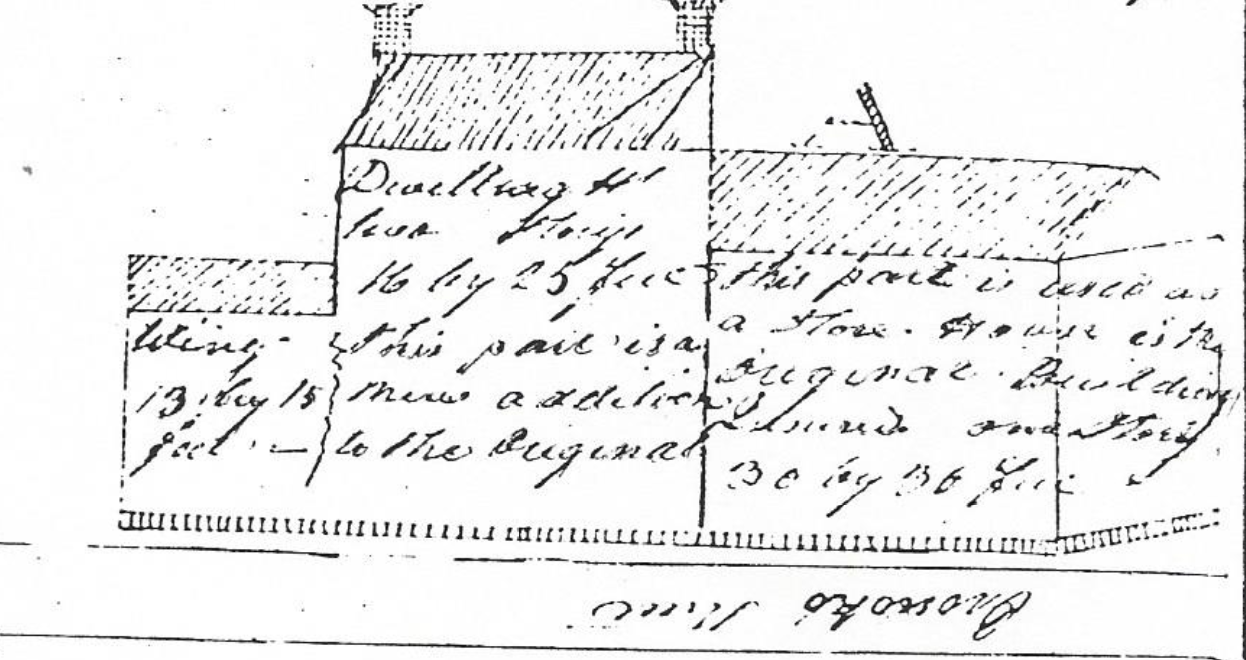 Dwelling H
two Storys
16 by 25 feet
this part is a
new addition
to the Original
Wing
13 by 15
feet
this part is used as
a Store. House is the
Original Building
Insured one Story
30 by 36 feet
Street